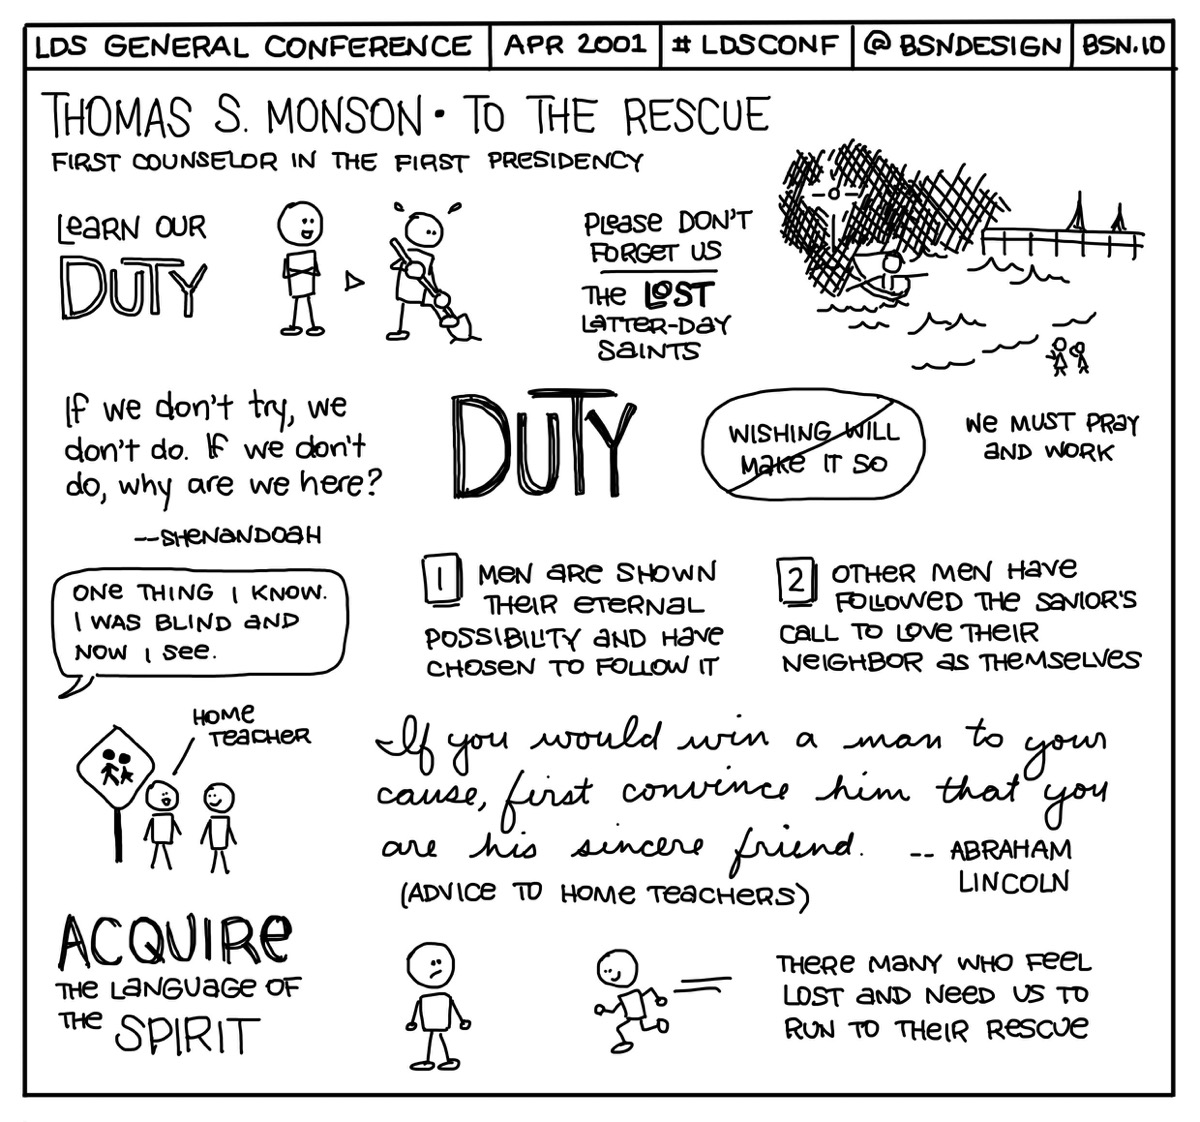 LDS GENERAL CONFERENCE
APR 2001
# LDSCONF
@ BSNDESIGN
BSN.IO
THOMAS S. MONSON · TO THE RESCUE
FIRST COUNSELOR IN THE FIRST PRESIDENCY
LEARN OUR
DUTY
PLEASE DON'T
FORGET US
THE LOST
LATTER-DAY
SAINTS
If we don't try, we
don't do. If we don't
do, why are we here?
--SHENANDOAH
DUTY
WISHING WILL
MAKE IT SO
WE MUST PRAY
AND WORK
ONE THING I KNOW.
I WAS BLIND AND
NOW I SEE.
1 MEN ARE SHOWN
THEIR ETERNAL
POSSIBILITY AND HAVE
CHOSEN TO FOLLOW IT
2 OTHER MEN HAVE
FOLLOWED THE SAVIOR'S
CALL TO LOVE THEIR
NEIGHBOR AS THEMSELVES
HOME
TEACHER
If you would win a man to your
cause, first convince him that you
are his sincere friend.
-- ABRAHAM
LINCOLN
(ADVICE TO HOME TEACHERS)
ACQUIRE
THE LANGUAGE OF
THE SPIRIT
THERE MANY WHO FEEL
LOST AND NEED US TO
RUN TO THEIR RESCUE